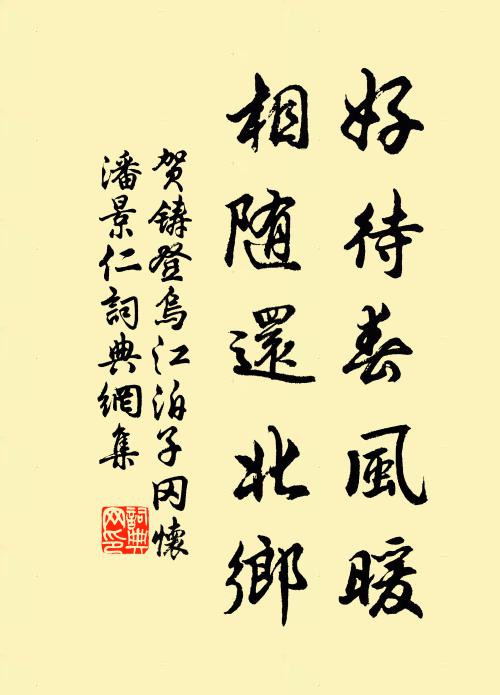 好待春風暖
相随還北鄉
賀鑄登烏江泊子冈懷
潘景仁詞典網集
詞典
网印